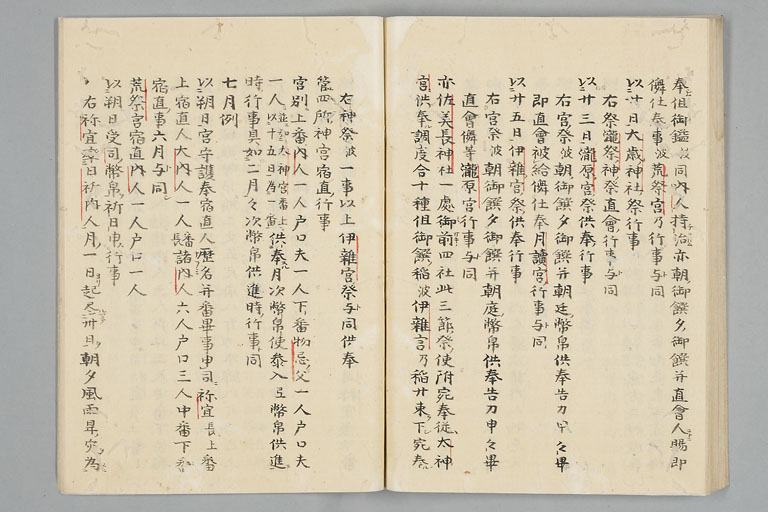 奉俎御鎰波同内人持治亦朝御饌夕御饌并直會人賜即
儛仕奉事波荒祭宮乃行事与同
以廿日大歳神社祭行事
右祭瀧祭神祭直會行事与同
以廿三日瀧原宮祭供奉行事
右宮祭波朝御饌夕御饌并朝廷幣帛供奉告刀申々畢
即直會被給儛仕奉月讀宮行事与同
以廿五日伊雜宮祭供奉行事
右宮祭波朝御饌夕御饌并朝庭幣帛供奉告刀申々畢
直會儛等瀧原宮行事与同
亦佐美長神社一處御前四社此三節祭使附宛奉從太神
宮洪奉調度合十種俎御饌稲波伊雜宮乃稲廿束下宛奉
右神祭波一事以上伊雜宮祭与同供奉
管四所神宮宿直行事
宮別上番内人一人戸口夫一人下番物忌父一人戸口夫
一人以十五日為一番供奉月次幣帛使参入玉幣帛供進
時行事具如二月々次幣帛供進時行事同
七月例
以朔日宮守護奉宿直人歴名并番畢事申司祢宜長上番
上宿直人大内人一人番長諸内人六人戸口三人中番下番
宿直事六月与同
荒祭宮宿直内人一人戸口一人
以朔日受司幣帛祈日申行事
右祢宜率日祈内人月一日起尽卅日朝夕風雨旱災為